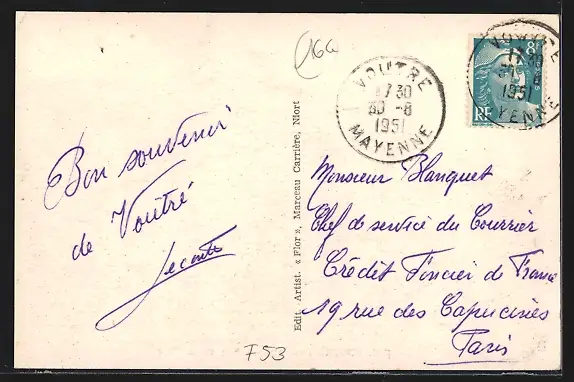 16a
VOUTRE
17 30
30 -8
1951
MAYENNE
VOUTRE
17 30
1951
MAYENNE
8F
RF
Bon souvenir
de Voutré
Lecomte
Edit. Artist. « Flor », Marceau Carrière, Niort
Monsieur Blanquet
Chef de service du Courrier
Crédit Foncier de France
19 rue des Capucines
Paris
F53